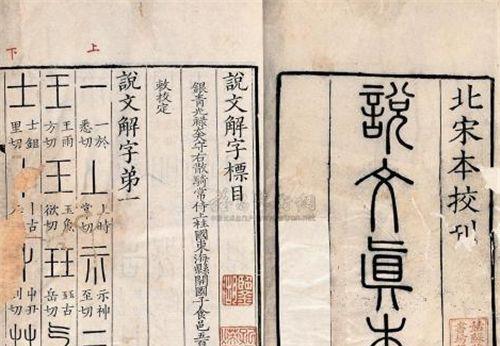 北宋本校刊
說文眞本
說文解字標目
銀青光祿大夫守右散騎常侍上柱國東海縣開國子食邑五百
敕校定
說文解字弟一
上
一 一於悉切 丄 上時掌切 示 示神至切
王 王雨方切 王 玉魚欲切 玨 玨古岳切
下
士 士鉏里切 丨 丨古 屮 屮丑列切 艸